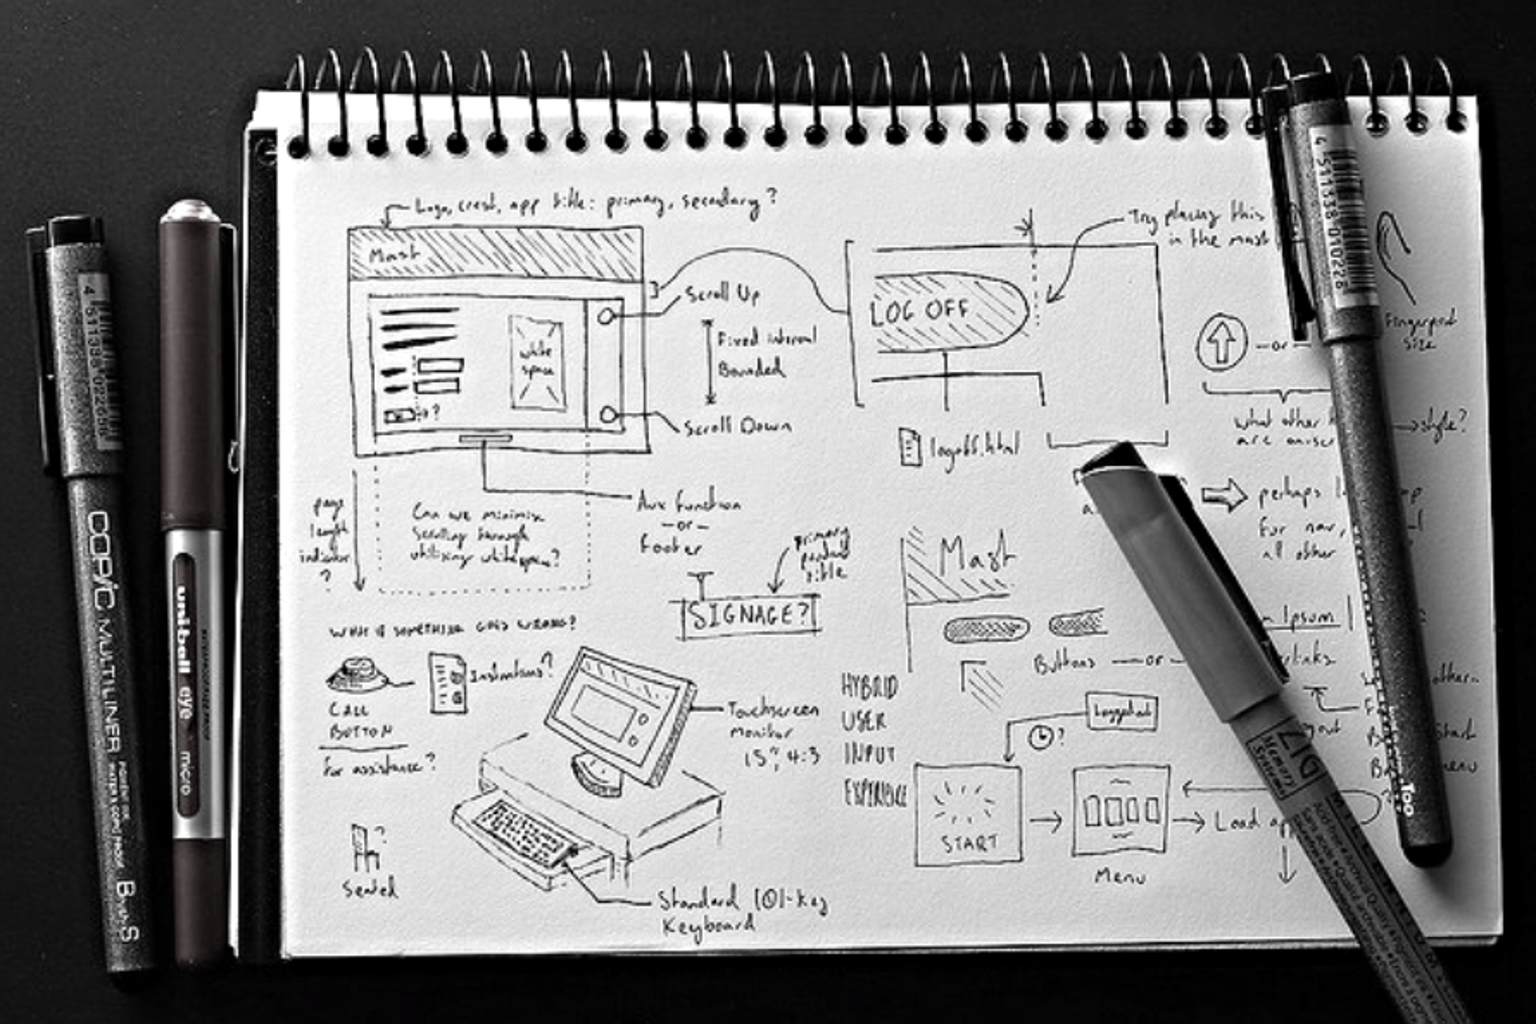 Logo, crest, app title: primary, secondary?
Mast
Scroll Up
Fixed interval
Bounded
Scroll Down
white
space
?
page
length
indicator
?
Can we minimise
scrolling through
utilising whitespace?
Aux function
-or-
footer
primary
product
title
SIGNAGE?
WHAT IF SOMETHING GOES WRONG?
Instructions?
CALL
BUTTON
for assistance?
?
Seated
Touchscreen
monitor
15", 4:3
Standard 101-key
Keyboard
LOG OFF
Try placing this
in the mast
logoff.html
Fingerprint
size
-or-
what other
are
style?
perhaps
for nav,
all other
Mast
Buttons -or-
Ipsum
HYBRID
USER
INPUT
EXPERIENCE
Logged out
?
START
Menu
Load
start
menu
4 511338 022658
COPIC MULTILINER
PIGMENT INK
WATER & COPIC PROOF
B-S
uni-ball eye micro
4 511338 010228
Too